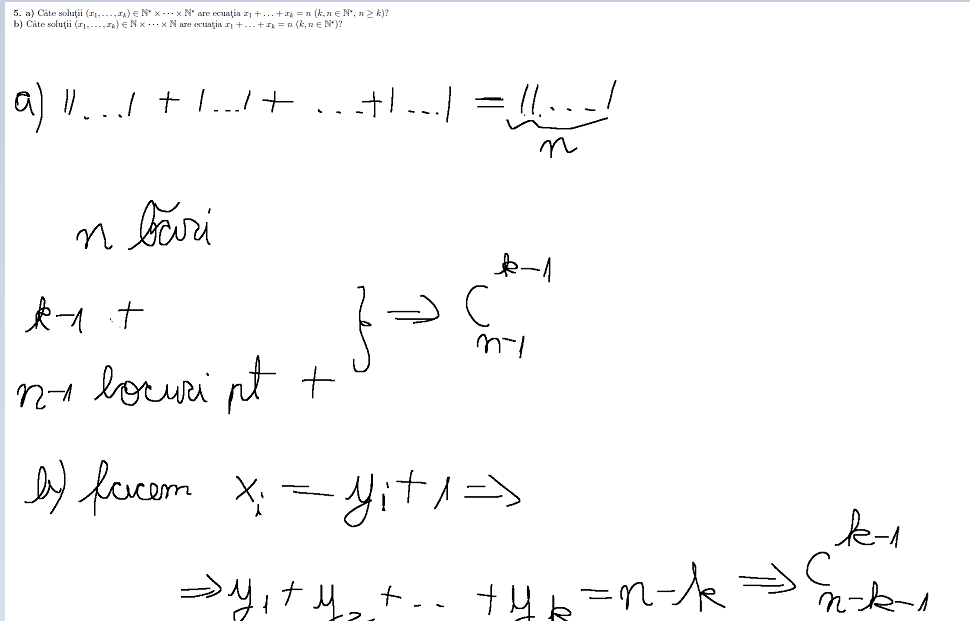 5. a) Câte soluții (x₁,…,xₖ) ∈ ℕ* × ⋯ × ℕ* are ecuația x₁ + … + xₖ = n (k, n ∈ ℕ*, n ≥ k)?
b) Câte soluții (x₁,…,xₖ) ∈ ℕ × ⋯ × ℕ are ecuația x₁ + … + xₖ = n (k, n ∈ ℕ*)?
a) ||...| + |...| + ...+|...| = ||...|
n
n bări
k-1 +
n-1 locuri pt +
} ⇒ C_{n-1}^{k-1}
b) facem xᵢ = yᵢ+1 ⇒
⇒ y₁ + y₂ + .. + yₖ = n-k ⇒ C_{n-k-1}^{k-1}